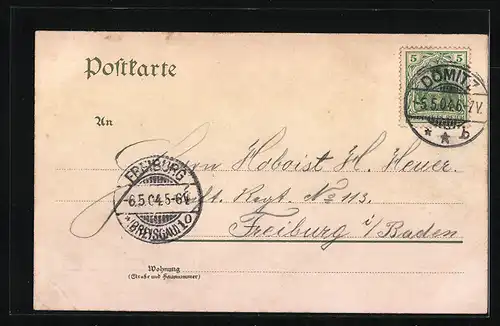 Postkarte
5 5
DÖMITZ
-5.5.04.6-7V.
* * b
An
Herrn Hoboist H. Heuer.
FREIBURG
-6.5.04.5-6V.
*(BREISGAU)1o
Regt. No 113.
Freiburg i/Baden
Wohnung
(Straße und Hausnummer)